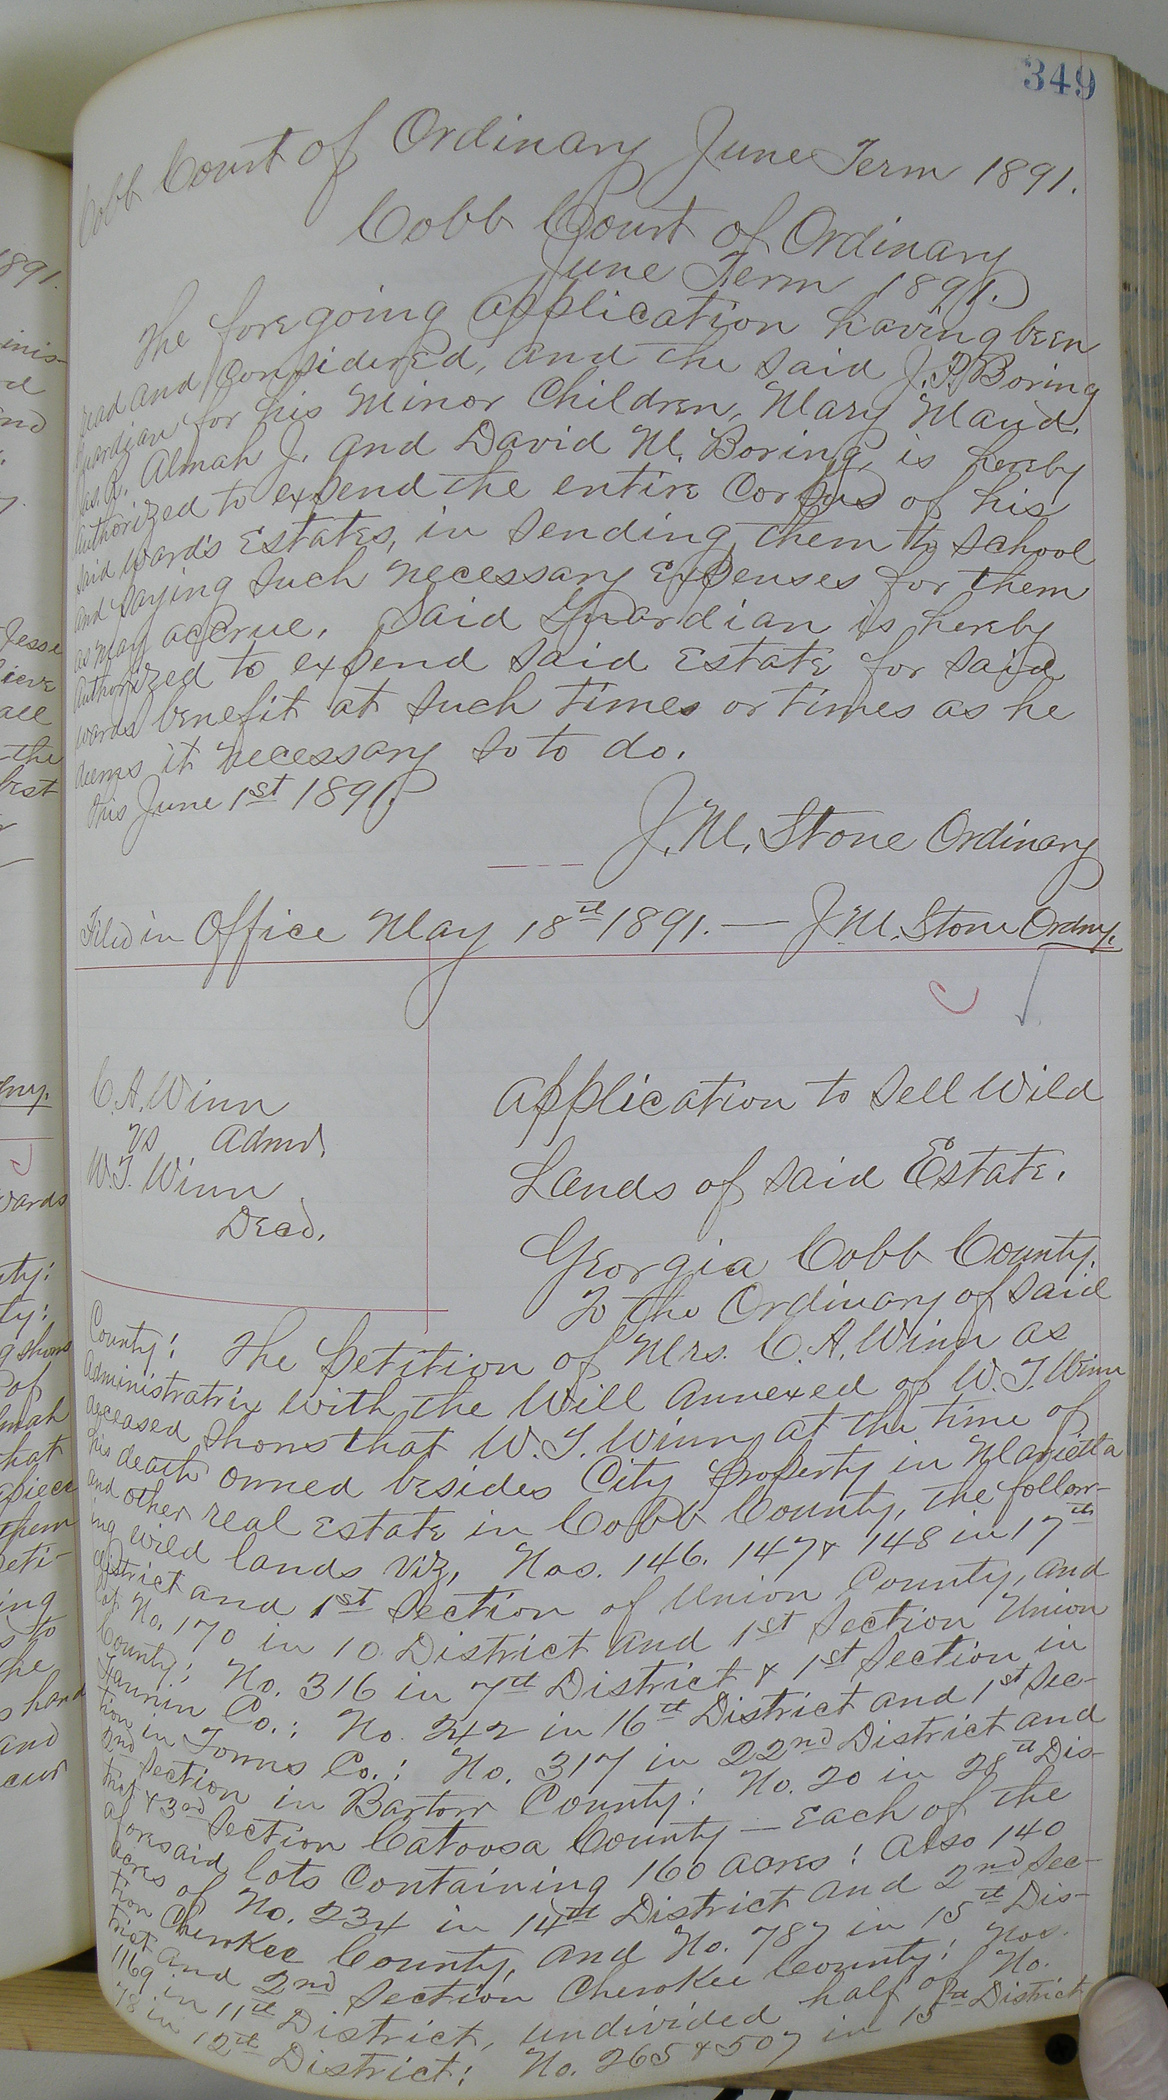 349
Cobb Court of Ordinary June Term 1891.
Cobb Court of Ordinary
June Term 1891.
The foregoing application having been
read and Considered, and the said J.P. Boring
Guardian for his Minor Children, Mary Maud.
Jas. R. Almah J. and David M. Boring, is hereby
Authorized to expend the entire Corpus of his
said ward's Estates, in sending them to school
and paying such necessary Expenses for them
as may accrue. Said Guardian is hereby
Authorized to expend said Estate for said
wards benefit at such times or times as he
deems it necessary so to do.
this June 1st 1891.
J. M. Stone Ordinary
Filed in Office May 18th 1891. — J. M. Stone Ordny.
C. A. Winn
vs Admr.
W. T. Winn
Decd.
Application to Sell Wild
Lands of said Estate.
Georgia Cobb County.
To the Ordinary of said
County: The Petition of Mrs. C. A. Winn as
Administratrix with the Will annexed of W. T. Winn
deceased shows that W. T. Winn at the time of
his death owned besides City Property in Marietta
and other real Estate in Cobb County, the follow-
ing wild lands viz, Nos. 146. 147 & 148 in 17th
district and 1st Section of Union County, and
lot No. 170 in 10 District and 1st Section Union
County; No. 316 in 7th District & 1st Section in
Fannin Co.: No. 242 in 16th District and 1st Sec-
tion in Towns Co.: No. 317 in 22nd District and
2nd Section in Bartow County: No. 20 in 28th Dis-
trict & 3rd Section Catoosa County — Each of the
aforesaid lots Containing 160 acres: Also 140
acres of No. 234 in 14th District and 2nd Sec-
tion Cherokee County, and No. 787 in 15th Dis-
trict and 2nd Section Cherokee County: Nos.
1169 in 11th District, undivided half of No.
78 in 12th District: No. 265 & 507 in 15th District